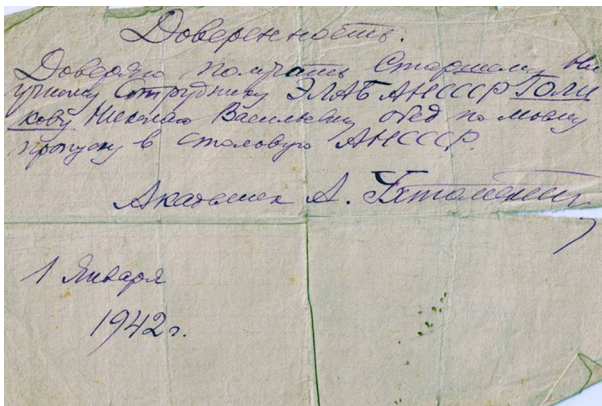 Доверенность.
Доверяю получать Старшему На
учному Сотруднику ЭЛАБ АНСССР Голи
кову Николаю Васильевичу обед по моему
пропуску в столовую АНСССР.
Академик А. Ухтомский
1 Января
1942 г.